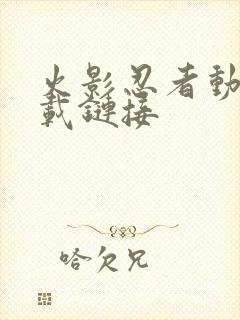 火影忍者動
載鏈接
哈欠兄